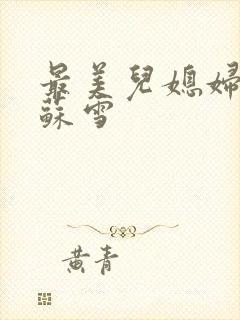 最美兒媳婦
蘇雪
黃青